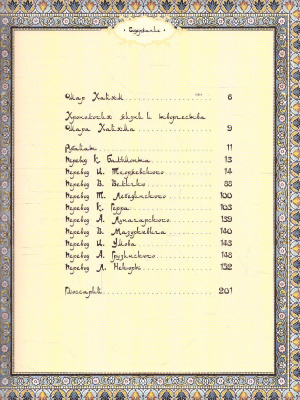 Содержание
Омар Хайям 6
Хронология жизни и творчества
Омара Хайяма 9
Рубаиат 11
Перевод К. Бальмонта 13
Перевод И. Тхоржевского 14
Перевод В. Величко 88
Перевод Т. Лебединского 100
Перевод К. Герра 103
Перевод А. 139
Перевод В. Мазуркевича 140
Перевод И. Умова 143
Перевод А. Грузинского 148
Перевод Л. Некоры 152
Глоссарий 201